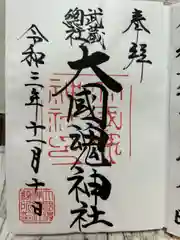 奉拝
武蔵
總社
大國魂神社
令和二年十一月十日